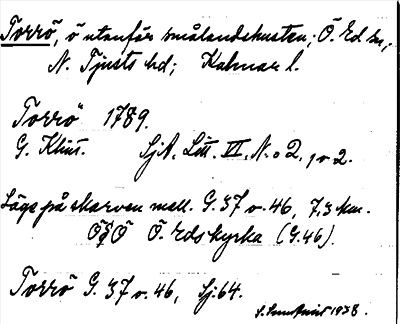 Torrö, ö utanför smålandskusten; Ö. Ed sn,
N. Tjusts hd; Kalmar l.
Torrö 1789.
G. Klint. SjA. Litt. VI, N:o 2, 1 o. 2.
Läge på skarven mell. G. 37 o. 46, 7,3 km.
ÖSÖ Ö. Eds kyrka (G. 46).
Torrö G. 37 o. 46, Sj. 64.
1938.